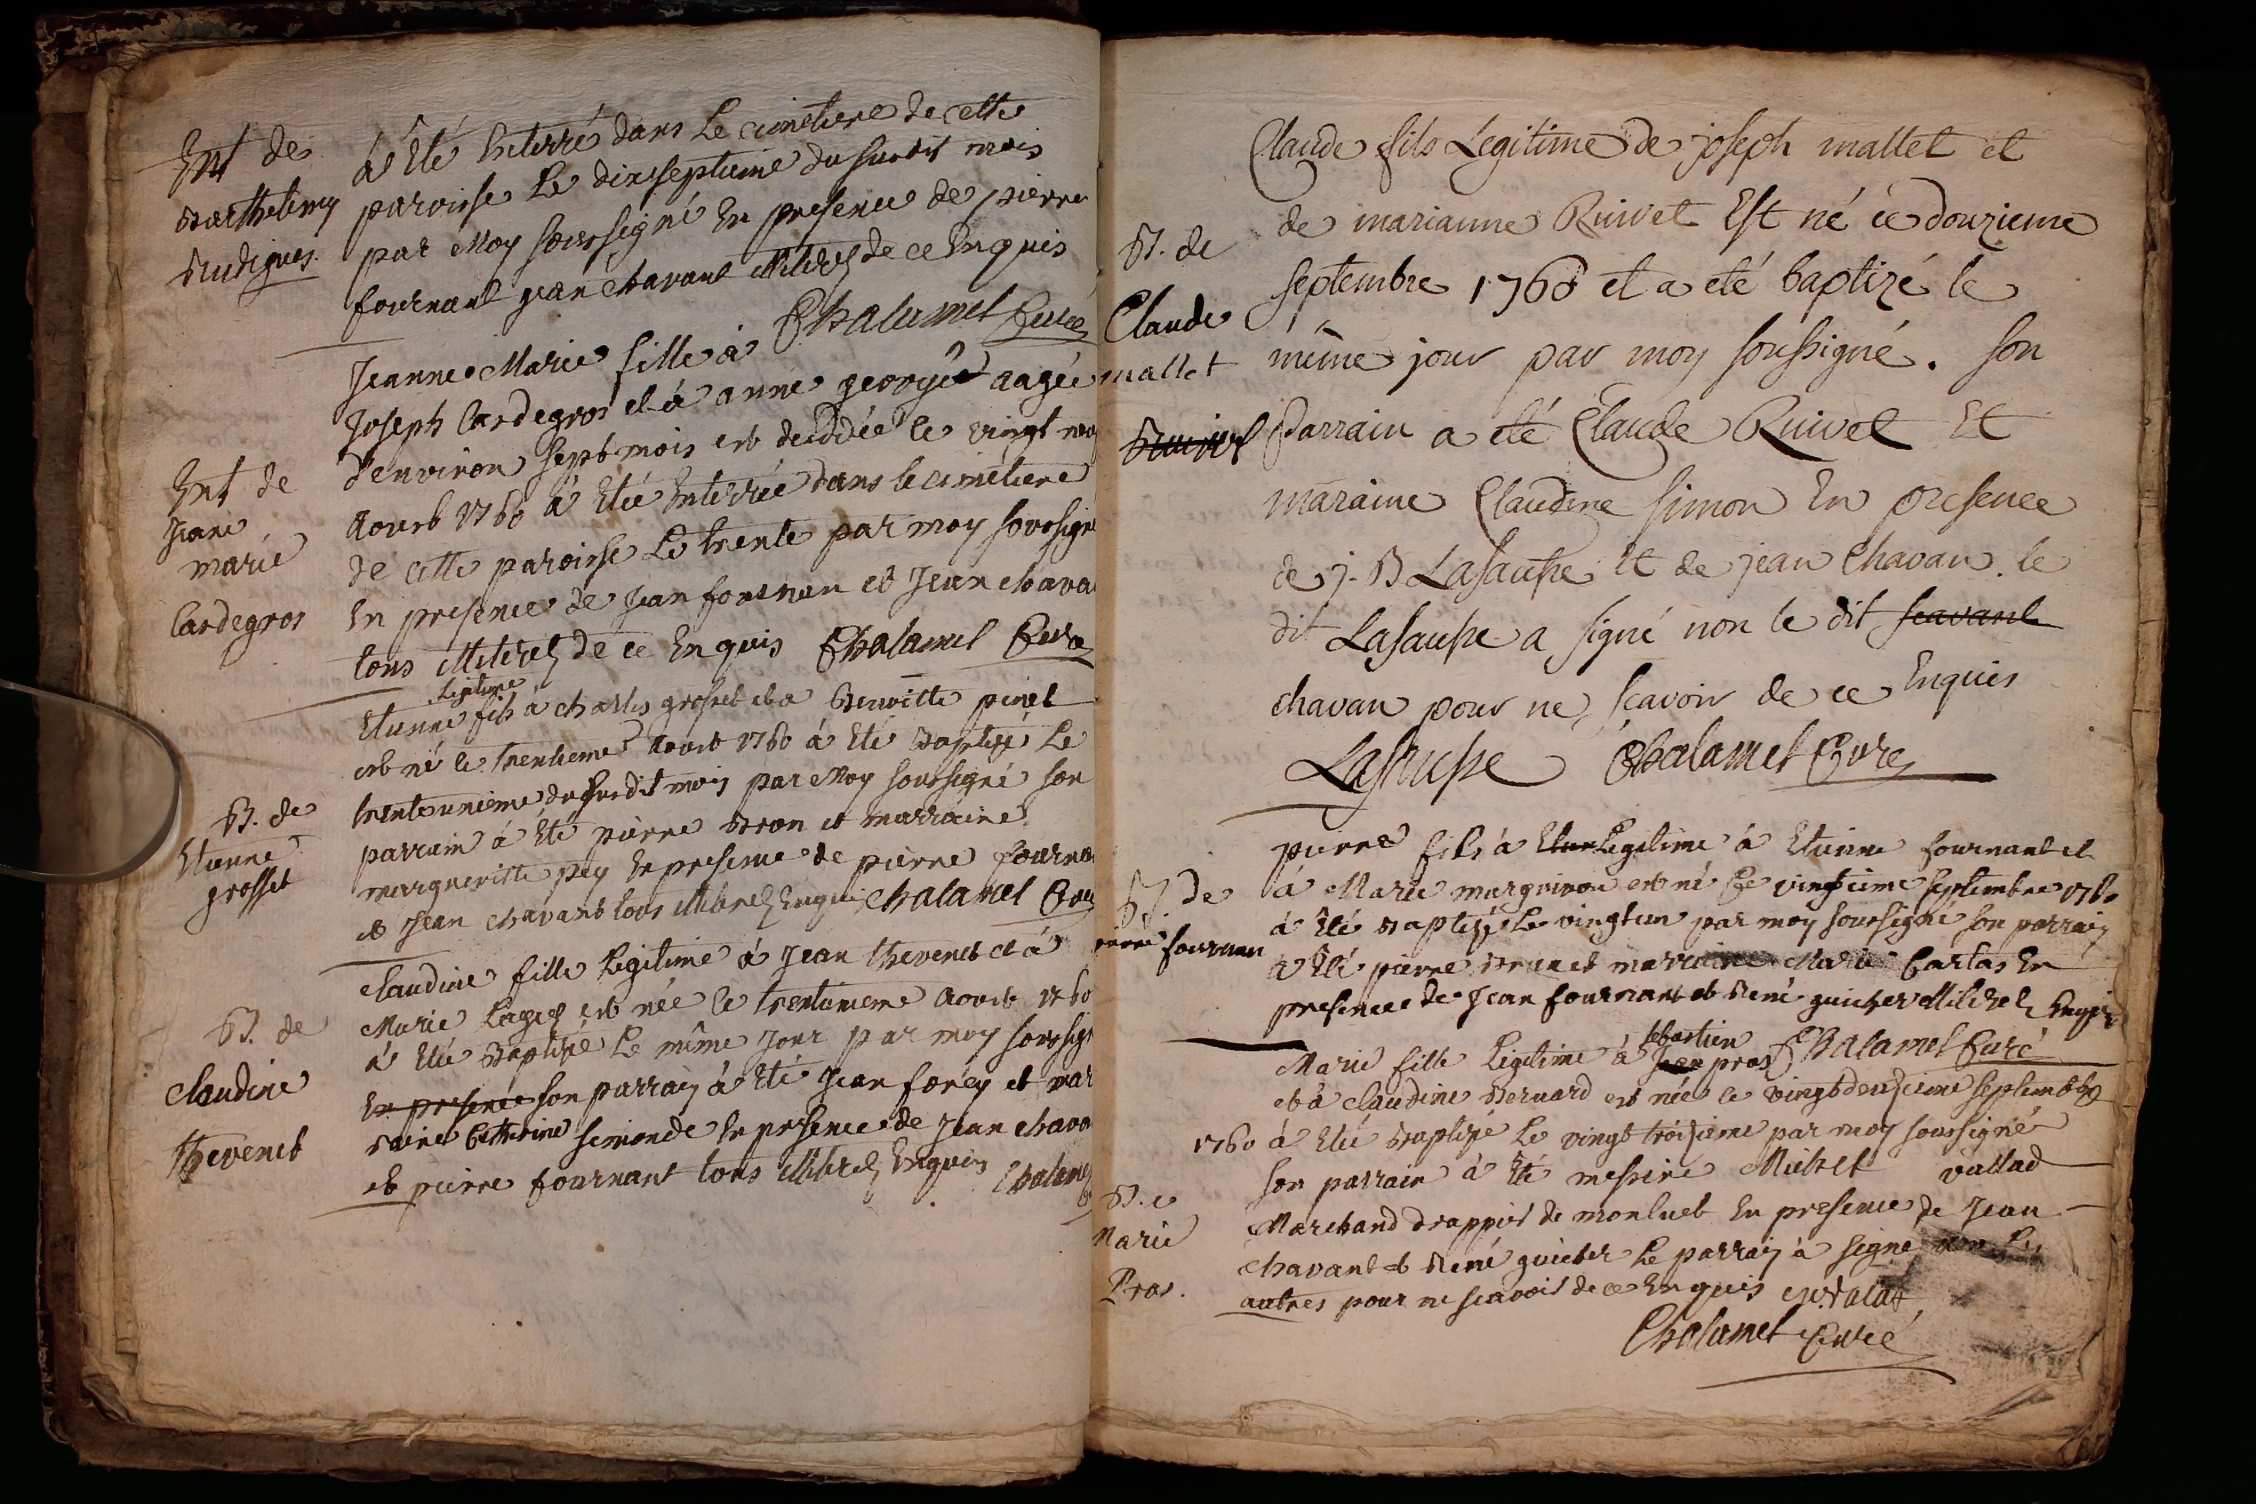 Ent de
Barthelemy
à Eté Enterré dans Le cimetiere de cette
paroisse Le dixseptieme du susdit mois
par Moy soussigné En presence de pierre
fournant jean Chavant de ce Enquis
Chalamet Curé
Ent de
Jeane
marie
Cardegros
Jeanne Marie fille à
Joseph Cardegros et à anne aagée
d'environ sept mois est decédée le vingt
Aoust 1760 à Eté Enterrée dans le cimetiere
de cette paroisse Le trente par moy soussigné
En presence de Jean fournan et Jean chava
tous illiterez de ce Enquis Chalamel Curé
B. de
Etienne
grosset
legitime
Etienne fils à charles grosset et a Benoitte pinet
est né le trentieme Aoust 1760 à Eté Baptisé Le
trenteunieme du susdit mois par Moy soussigné son
parrain à Eté pierre Bron et marraine
margueritte pey En presence de pierre fourna
et Jean chavant tous illiterez Enquis Chalamel Cur
B. de
Claudine
thevenet
Claudine fille Legitime à Jean thevenet et à
Marie est née le trentunieme Aoust 1760
à Eté Baptisée Le même Jour par moy soussig
En presence son parrain à Eté Jean et mar
raine Catherine simonde En presence de Jean chava
et pierre fournant tous illiterez Enquis Chalamel
B. de
Claude
mallet
Claude fils Legitime de joseph mallet et
de marianne Ruivet Est né ce douzieme
septembre 1760 et a eté baptizé le
même jour par moy soussigné. son
Parrain a eté Claude Ruivet Et
maraine Claudine simon En presence
de j. B Lasausse Et de jean Chavan. le
dit Lasausse a signé non le dit scavant
chavan pour ne scavoir de ce Enquis
Lasausse Chalamet Curé
B. de
pierre fournan
pierre fils à Legitime à Etienne fournant et
à Marie est né Le vingtieme septembre 1760
à Eté Baptisé Le vingtun par moy soussigné son parrain
à Eté pierre Brun et marraine Marie Cartas En
presence de Jean fournant et René guicher illiterez Enquis
Chalamel Curé
B. e
Marie
Pras.
sebastien
Marie fille Legitime à Jean pras
et à Claudine Bernard est née le vingtdeuxieme septembre
1760 à Eté Baptisée Le vingt troisieme par moy soussigné
son parrain à Eté messire Michel vallad
Marchand drappier de monluet En presence de Jean
chavant et René guicher Le parrain à signé non Les
autres pour ne scavoir de ce Enquis
Chalamet Curé